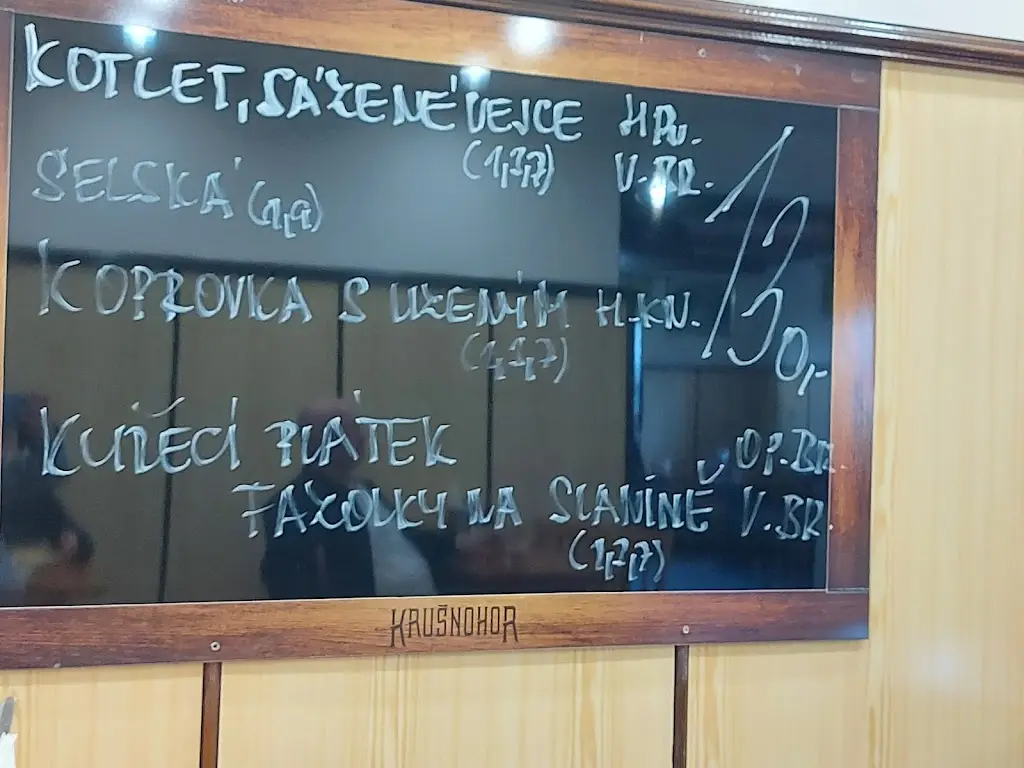 KOTLET, SÁZENÉ VEJCE H PU.
(1,3,7) V.BR.
SELSKÁ (1,9)
130,-
KOPROVKA S UZENÝM H.KN.
(1,3,7)
KUŘECÍ PLÁTEK OP.BR.
FAZOLKY NA SLANINĚ V.BR.
(1,3,7)
KRUŠNOHOR